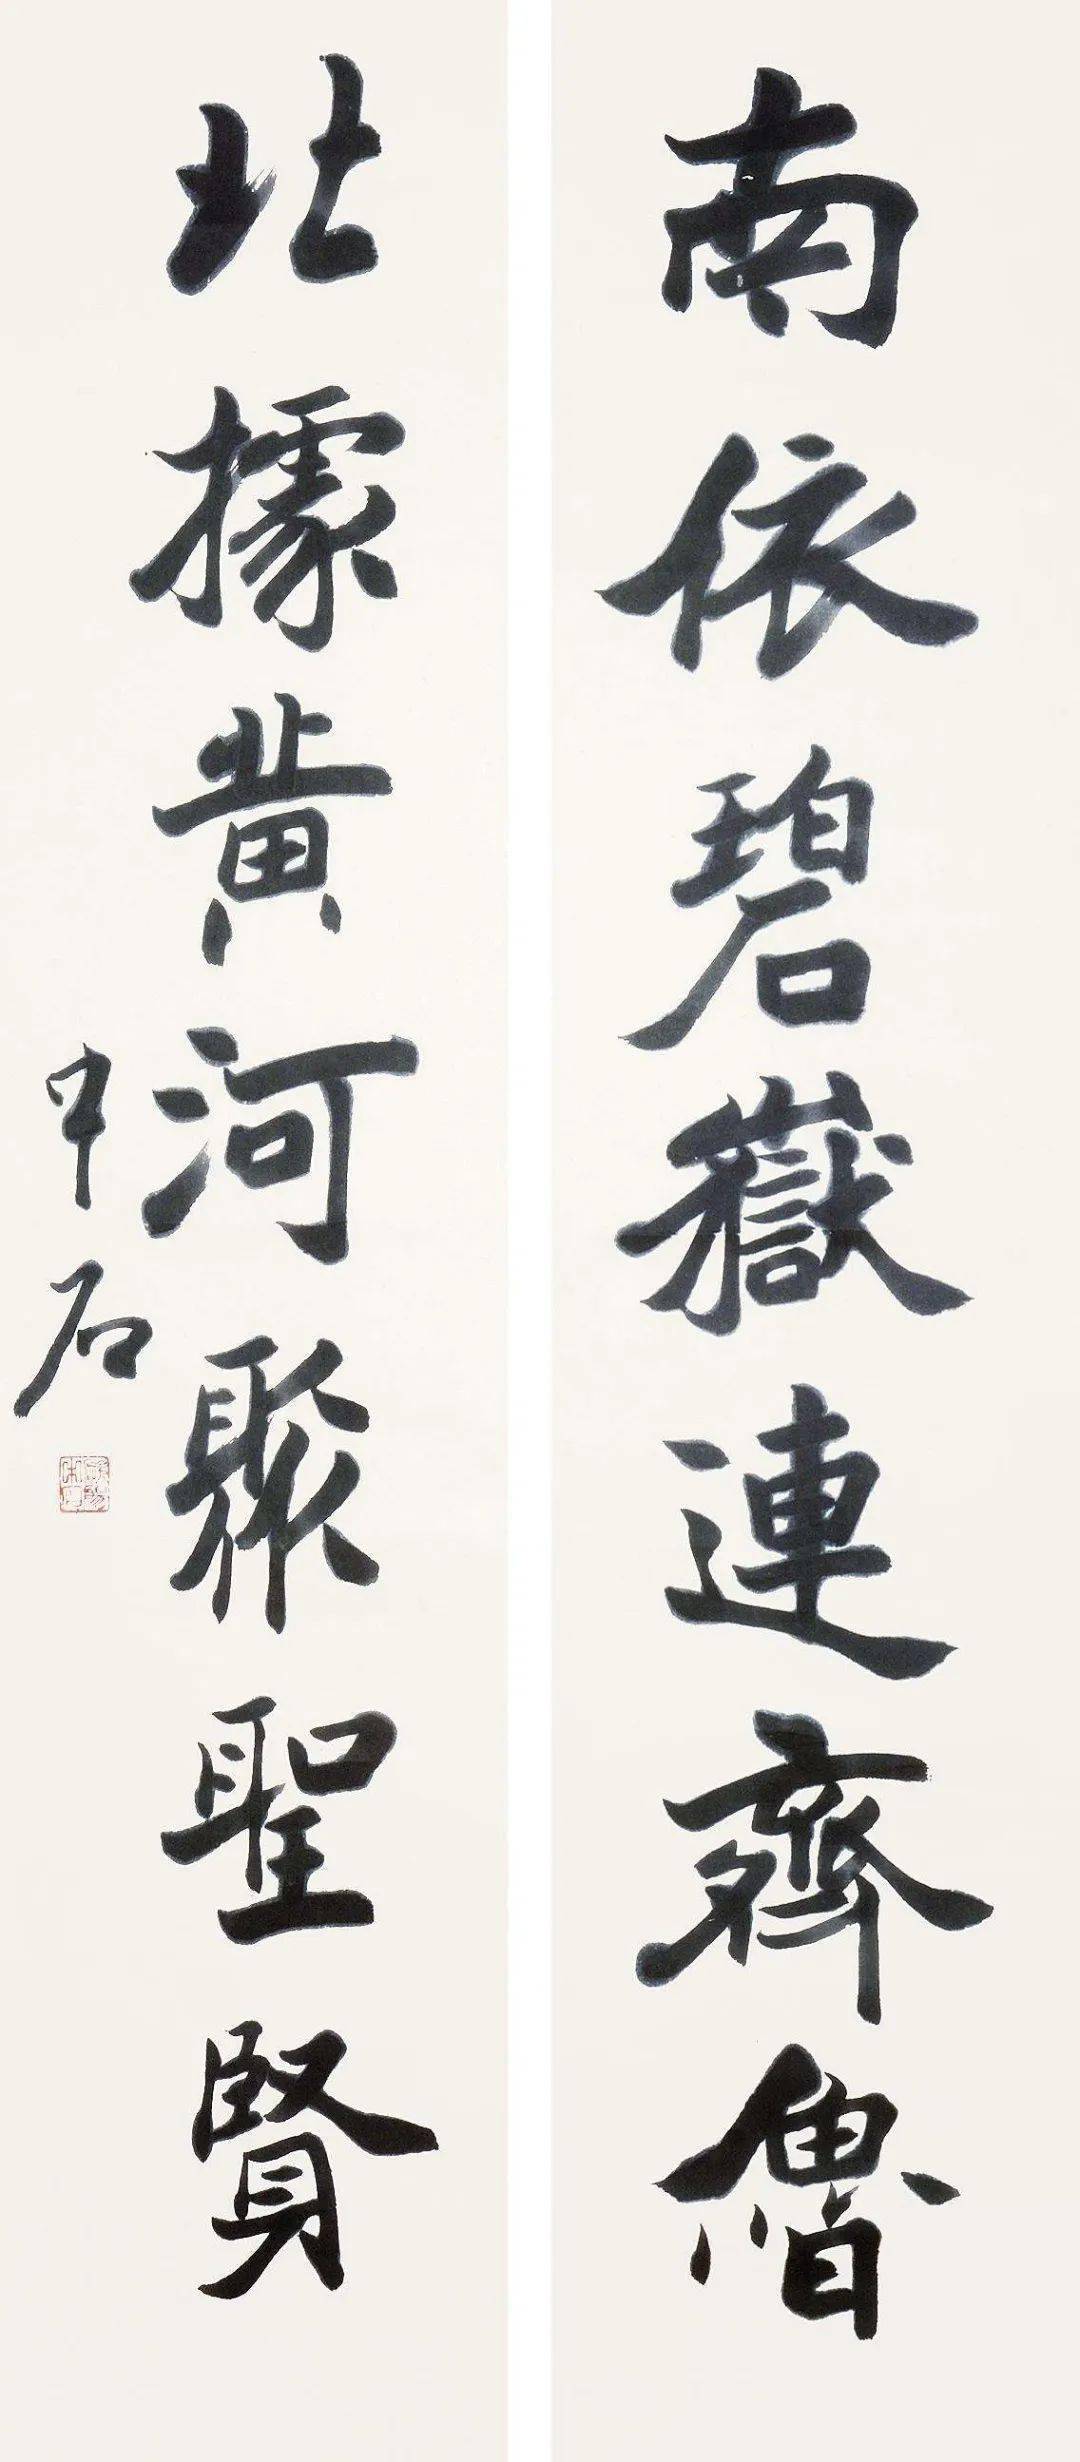 南依碧嶽連齊魯
北據黃河聚聖賢
中石